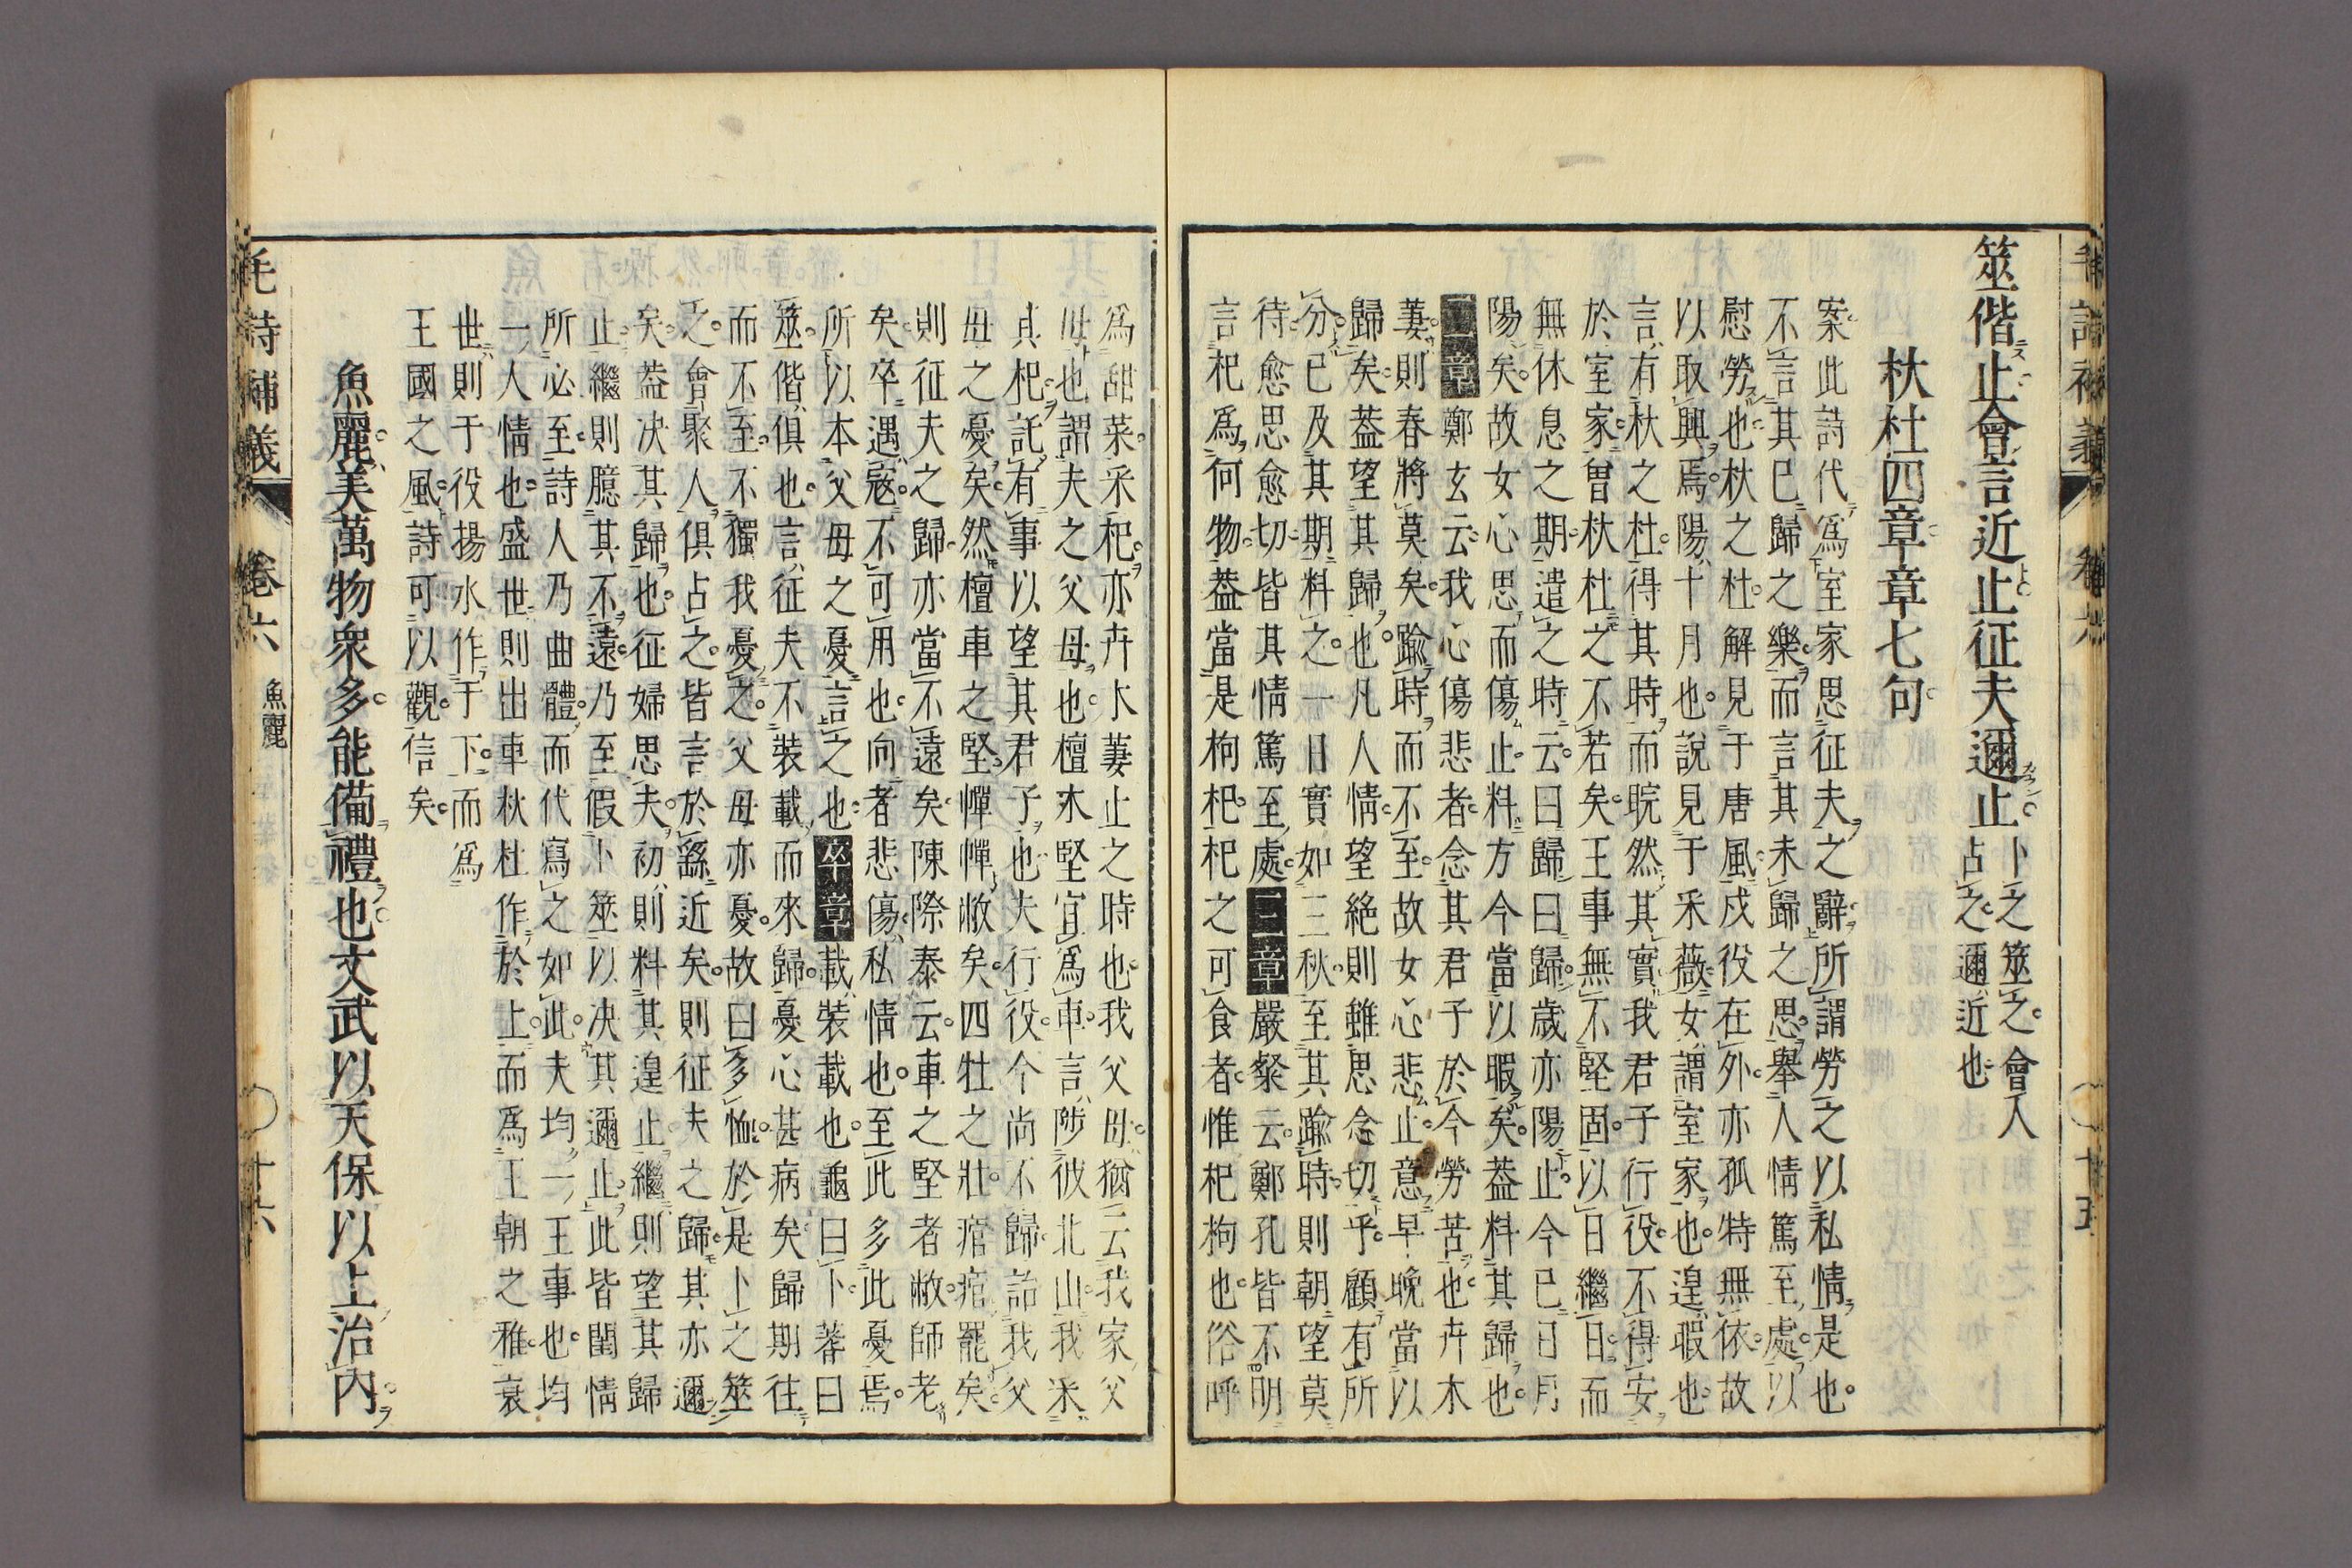 毛詩補義 卷六 十五
筮偕止會言近止征夫邇止卜之筮之會人
占之邇近也
杕杜四章章七句
案此詩代爲室家思征夫之辭所謂勞之以私情是也
不言其已歸之樂而言其未歸之思舉人情篤至處以
慰勞也杕之杜解見于唐風戍役在外亦孤特無依故
以取興焉陽十月也說見于采薇女謂室家也遑暇也
言有杕之杜得其時而睆然其實我君子行役不得安
於室家曽杕杜之不若矣王事無不堅固以日繼日而
無休息之期遣之時云曰歸曰歸歲亦陽止今已日月
陽矣故女心思而傷止料方今當以暇矣葢料其歸也
二章鄭玄云我心傷悲者念其君子於今勞苦也卉木
萋則春將莫矣踰時而不至故女心悲止意早晚當以
歸矣葢望其歸也凡人情望絕則雖思念切乎顧有所
分已及其期料之一日實如三秋至其踰時則朝望莫
待愈思愈切皆其情篤至處三章嚴粲云鄭孔皆不明
言杞爲何物葢當是枸杞杞之可食者惟杞枸也俗呼
爲甜菜采杞亦卉木萋止之時也我父母猶云我家父
母也謂夫之父母也檀木堅宜爲車言陟彼北山我采
其杞託有事以望其君子也夫行役今尚不歸詒我父
母之憂矣然檀車之堅幝幝敝矣四牡之壯痯痯罷矣
則征夫之歸亦當不遠矣陳際泰云車之堅者敝師老
矣卒遇寇不可用也向者悲傷私情也至此多此憂焉
所以本父母之憂言之也卒章載裝載也龜曰卜蓍曰
筮偕俱也言征夫不裝載而來歸憂心甚病矣歸期往
而不至不獨我憂之父母亦憂故曰多恤於是卜之筮
之會聚人俱占之皆言於繇近矣則征夫之歸其亦邇
矣葢決其歸也征婦思夫初則料其遑止繼則望其歸
止繼則臆其不遠乃至假卜筮以决其邇止此皆閨情
所必至詩人乃曲體而代寫之如此夫均一王事也均
一人情也盛世則出車杕杜作於上而爲王朝之雅衰
世則于役揚水作于下而爲
王國之風詩可以觀信矣
魚麗美萬物衆多能備禮也文武以天保以上治內
毛詩補義 卷六 魚麗 十六